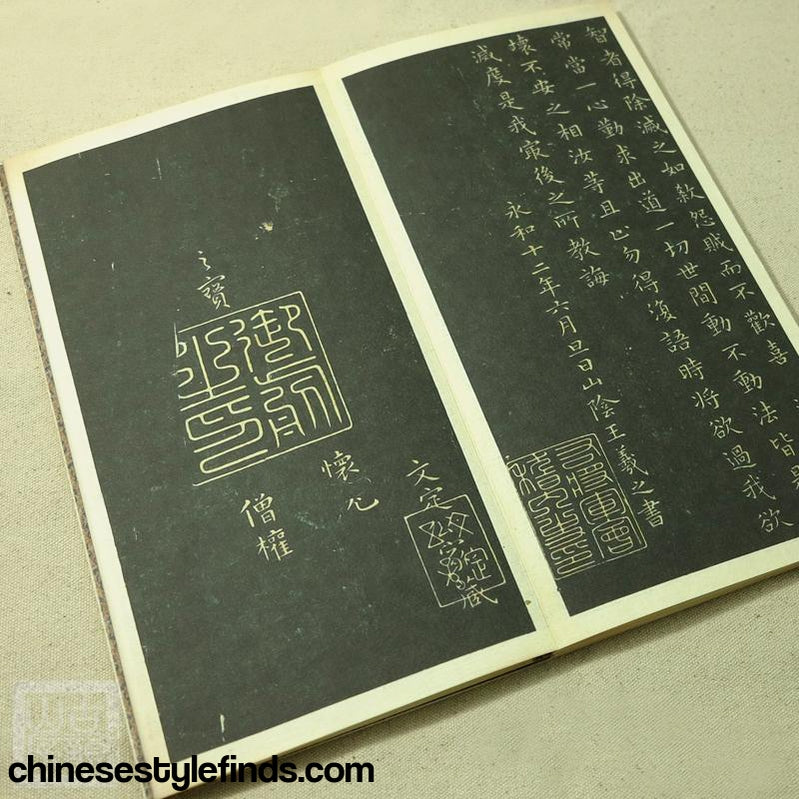 智者得除滅之如殺怨賊而不歡喜
常當一心勤求出道一切世間動不動法皆是
壞不安之相汝等且止勿得復語時將欲過我欲
滅度是我冣後之所教誨
永和十二年六月旦日山陰王羲之書
右將軍會稽內史印
文定
藏
懷
僧權
之寶
御前之印
chinesestylefinds.com